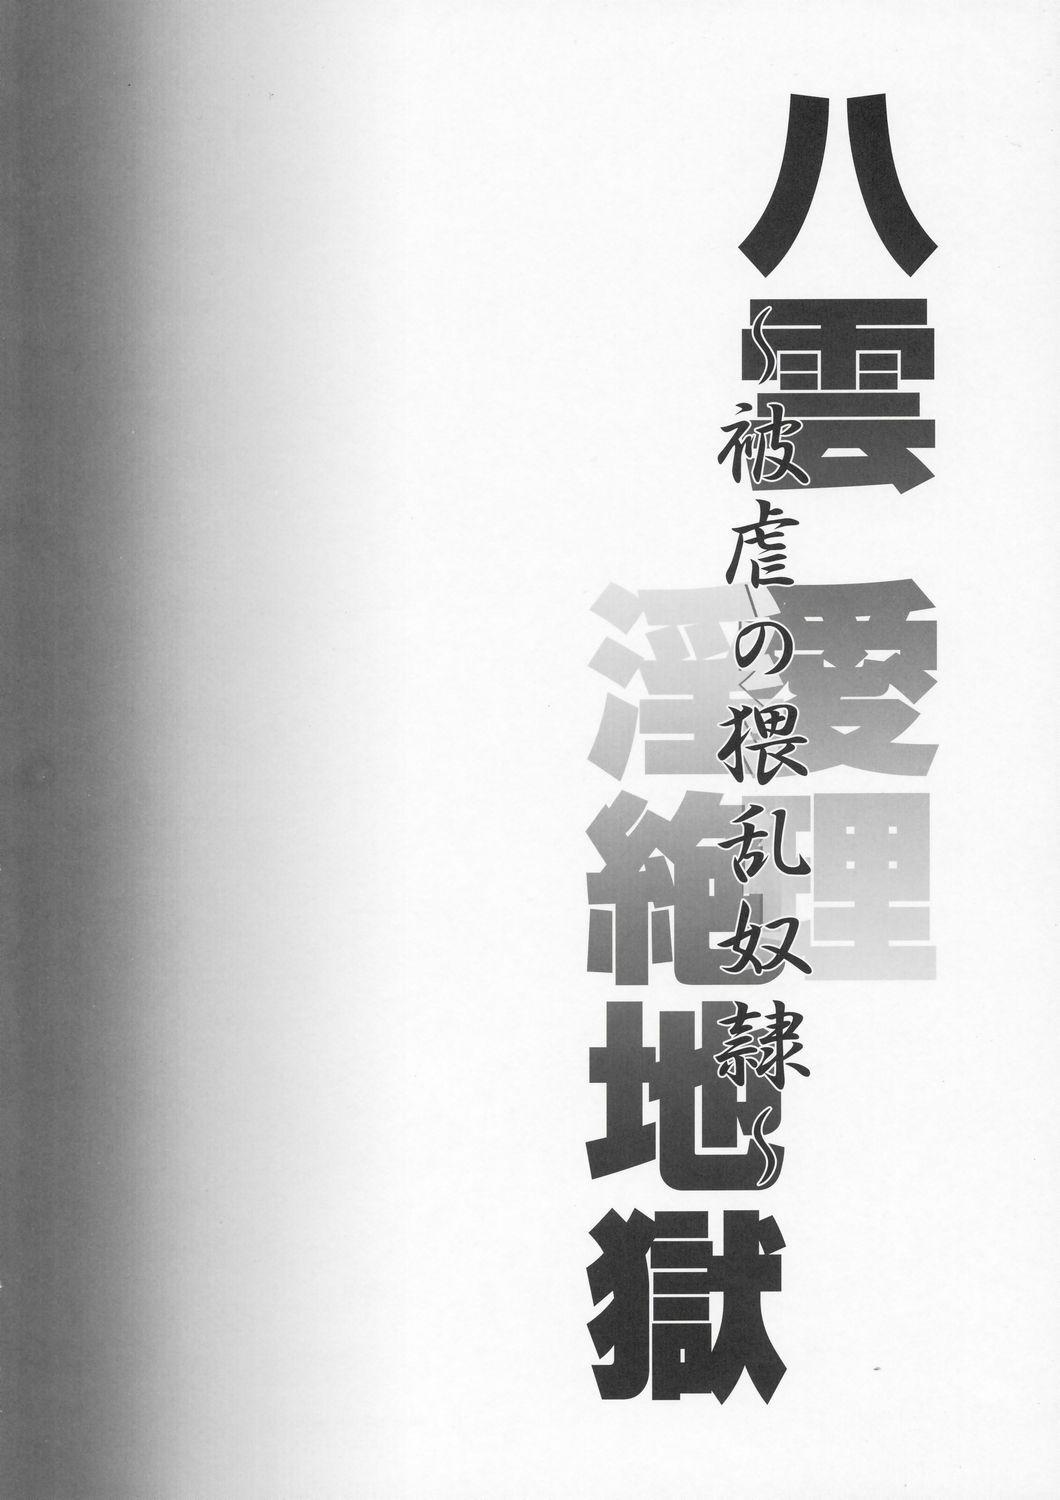 八雲愛理
淫絶地獄
～被虐の猥乱奴隷～